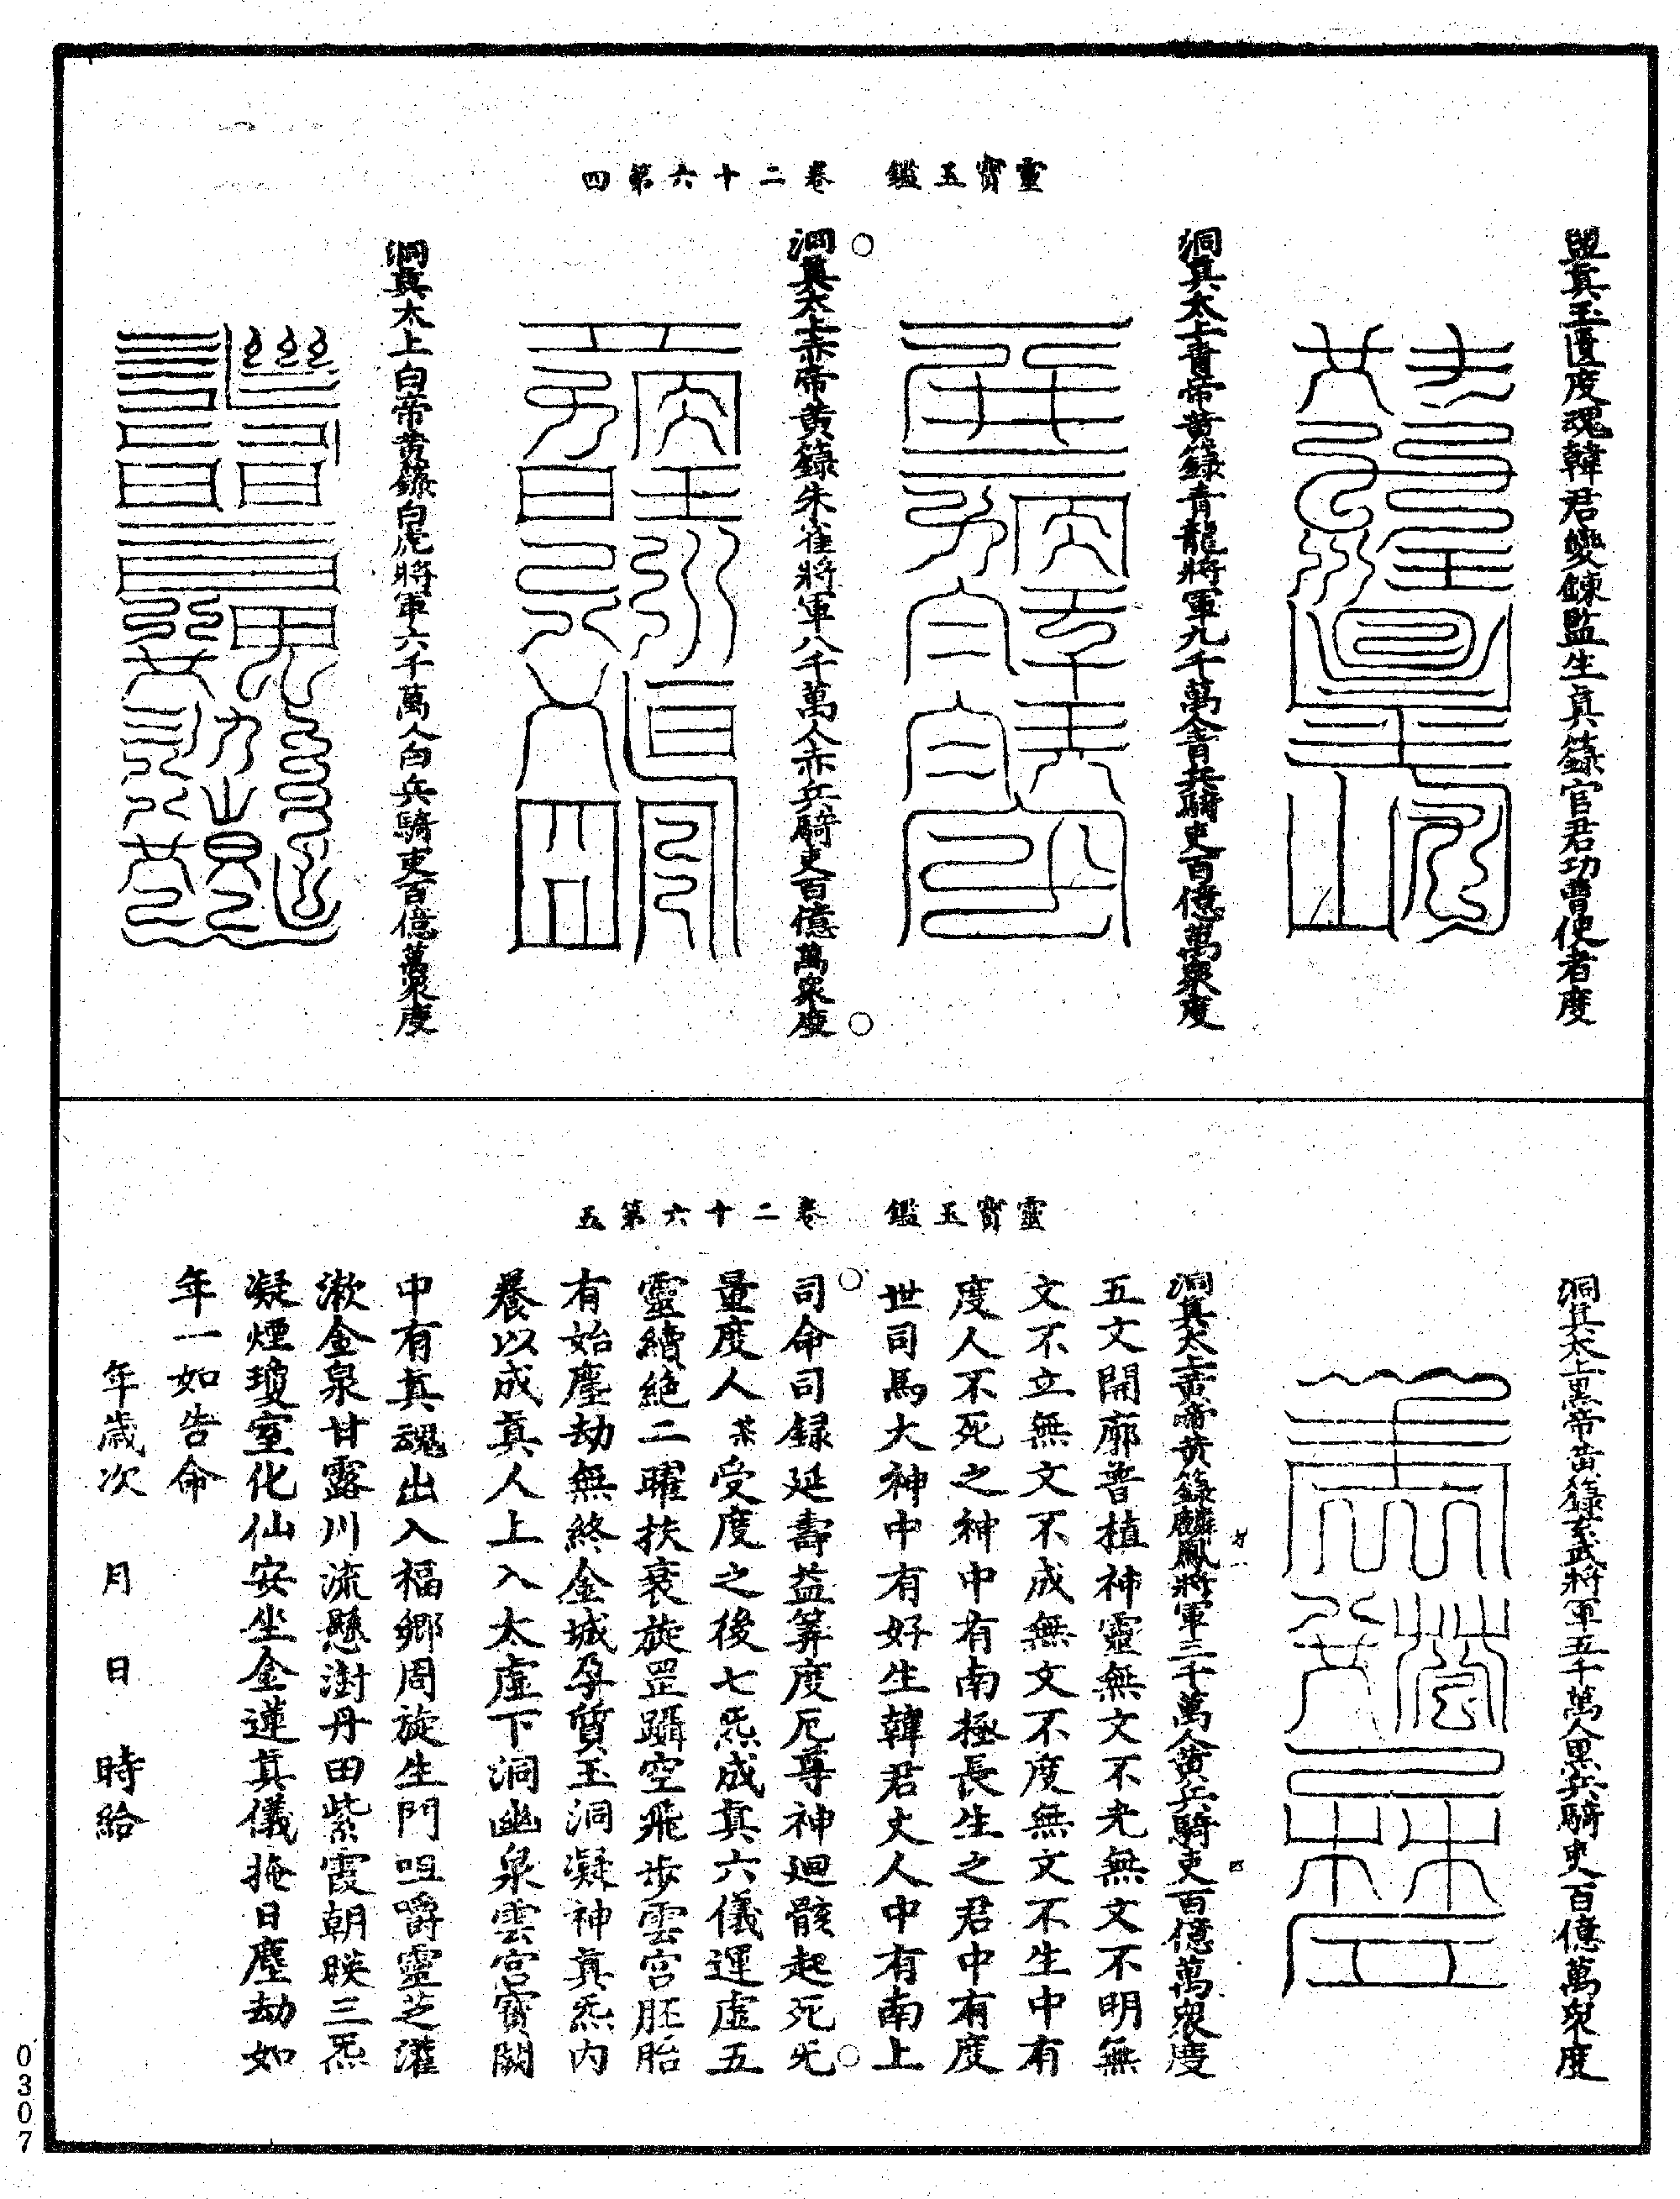 靈寶玉鑑　卷二十六第四
盟真玉匱度魂韓君變鍊監生真籙官君功曹使者度
洞真太上青帝黃籙青龍將軍九千萬人青兵騎吏百億萬衆度
洞真太上赤帝黃籙朱雀將軍八千萬人赤兵騎吏百億萬衆度
洞真太上白帝黃籙白虎將軍六千萬人白兵騎吏百億萬衆度
靈寶玉鑑　卷二十六第五
洞真太上黑帝黃籙玄武將軍五千萬人黑兵騎吏百億萬衆度
洞真太上黃帝黃籙麟鳳將軍三千萬人黃兵騎吏百億萬衆度
五文開廓普植神靈無文不光無文不明無
文不立無文不成無文不度無文不生中有
度人不死之神中有南極長生之君中有度
世司馬大神中有好生韓君丈人中有南上
司命司録延壽益筭度厄尊神迴骸起死无
量度人某受度之後七炁成真六儀運虛五
靈續絶二曜扶衰旋罡躡空飛步雲宮胚胎
有始塵劫無終金城孕質玉洞凝神真炁内
養以成真人上入太虛下洞幽泉雲宮寶闕
中有真魂出入福鄉周旋生門咀嚼靈芝灌
漱金泉甘露川流懸澍丹田紫霞朝映三炁
凝煙瓊室化仙安坐金蓮真儀掩日塵劫如
年一如告命
年歲次　月　日　時給
0307